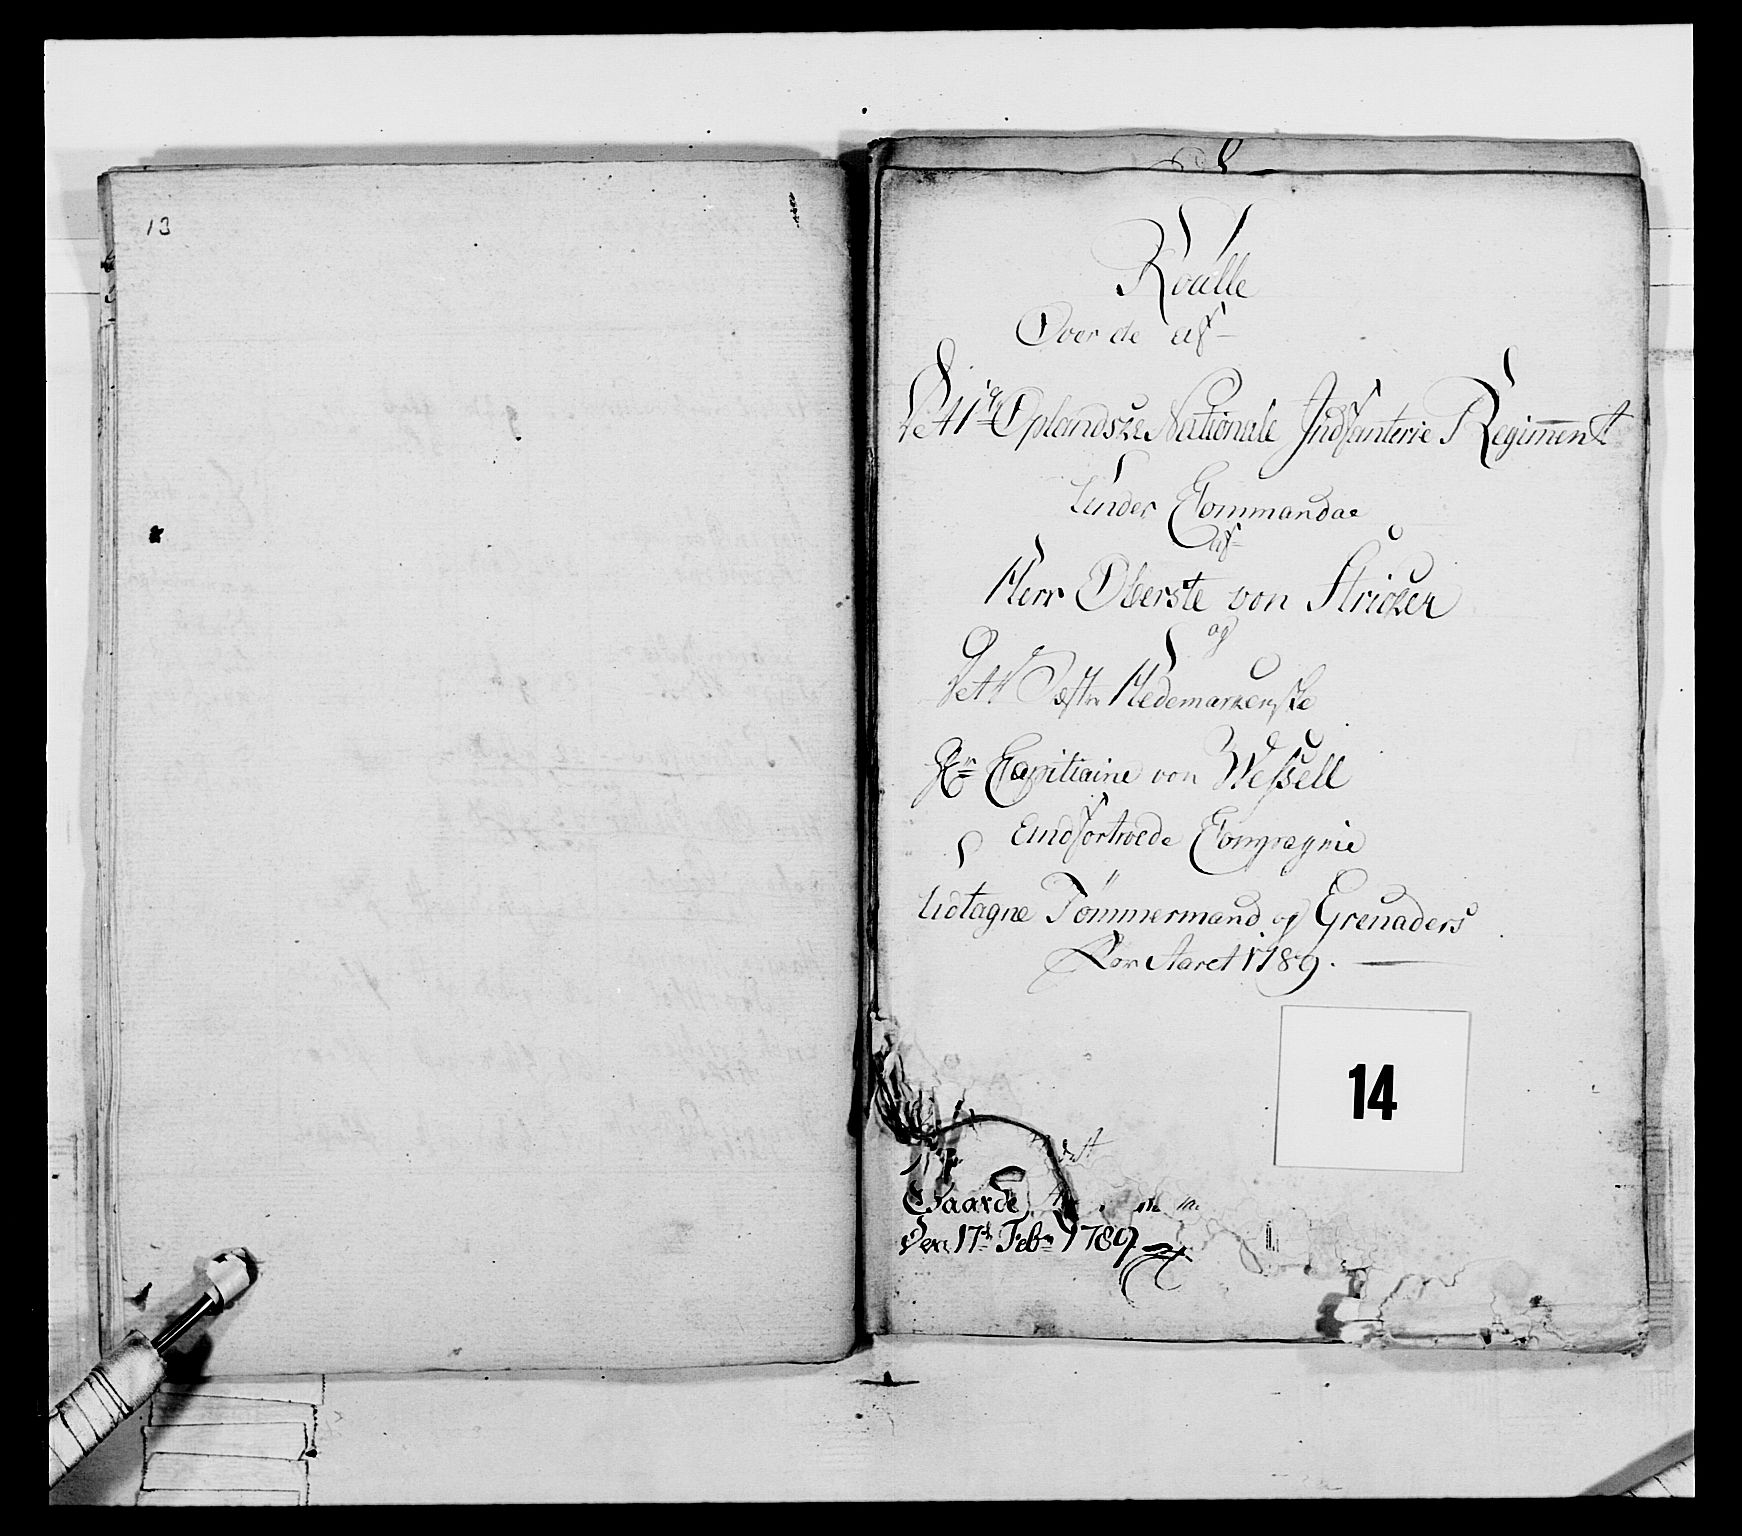 13
Roulle
Over de af
Det 1te Oplandske Nationale Indfanterie Regiment
Under Commandae
af
Herr Oberste von Stricker
og
Det Hedemarkenske
Hr. Capitiaine von Wessell
Andfortroede Compagnie
Udtagne Tömmermand og Grenaders
For Aaret 1789.
14
Gaarde
Den 17de Febr 1789